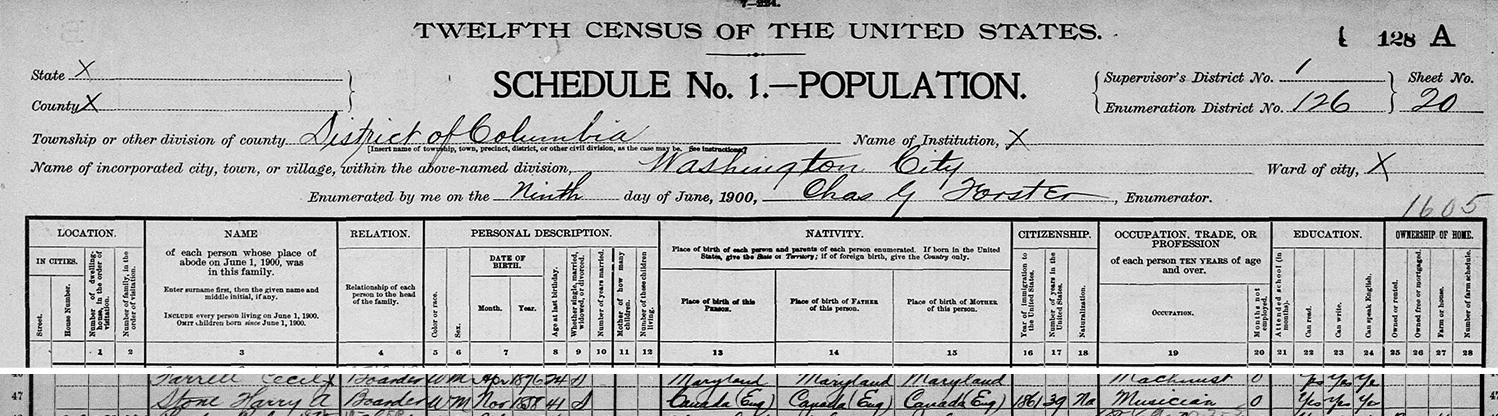 7-224.
TWELFTH CENSUS OF THE UNITED STATES.
128 A
State X
County X
SCHEDULE No. 1.—POPULATION.
Supervisor's District No. 1
Enumeration District No. 126
Sheet No.
20
Township or other division of county District of Columbia
[Insert name of township, town, precinct, district, or other civil division, as the case may be. See instructions.]
Name of Institution, X
Name of incorporated city, town, or village, within the above-named division, Washington City
Ward of city, X
Enumerated by me on the Ninth day of June, 1900, Chas G Forster, Enumerator.
1605
LOCATION.
IN CITIES.
Street.
House Number.
Number of dwelling-house, in the order of visitation.
Number of family, in the order of visitation.
NAME
of each person whose place of
abode on June 1, 1900, was
in this family.
Enter surname first, then the given name and
middle initial, if any.
INCLUDE every person living on June 1, 1900.
OMIT children born since June 1, 1900.
RELATION.
Relationship of each
person to the head
of the family.
PERSONAL DESCRIPTION.
Color or race.
Sex.
DATE OF
BIRTH.
Month.
Year.
Age at last birthday.
Whether single, married, widowed, or divorced.
Number of years married.
Mother of how many children.
Number of these children living.
NATIVITY.
Place of birth of each person and parents of each person enumerated. If born in the United
States, give the State or Territory; if of foreign birth, give the Country only.
Place of birth of this
PERSON.
Place of birth of FATHER
of this person.
Place of birth of MOTHER
of this person.
CITIZENSHIP.
Year of immigration to the United States.
Number of years in the United States.
Naturalization.
OCCUPATION, TRADE, OR
PROFESSION
of each person TEN YEARS of age
and over.
OCCUPATION.
Months not employed.
EDUCATION.
Attended school (in months).
Can read.
Can write.
Can speak English.
OWNERSHIP OF HOME.
Owned or rented.
Owned free or mortgaged.
Farm or house.
Number of farm schedule.
1 2 3 4 5 6 7 8 9 10 11 12 13 14 15 16 17 18 19 20 21 22 23 24 25 26 27 28
Farrell Cecil Boarder W M Apr 1876 24 S Maryland Maryland Maryland Machinist 0 Yes Yes Yes
47 Stone Harry A Boarder W M Nov 1858 41 S Canada (Eng) Canada (Eng) Canada (Eng) 1861 39 Na Musician 0 Yes Yes Yes 47